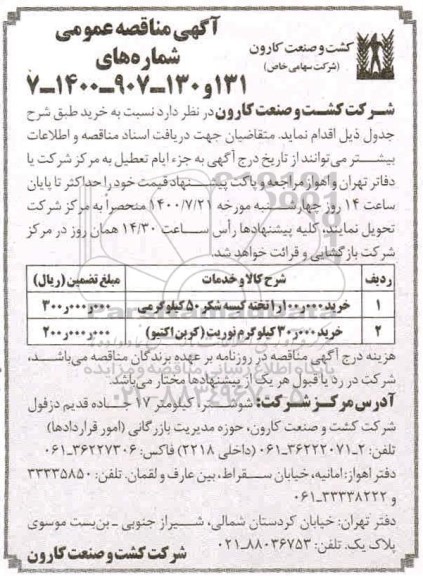 آگهی مناقصه عمومی
شماره‌های
۱۳۱و۱۳۰-۹۰۷-۱۴۰۰-۷
کشت و صنعت کارون
(شرکت سهامی خاص)
شرکت کشت و صنعت کارون در نظر دارد نسبت به خرید طبق شرح
جدول ذیل اقدام نماید. متقاضیان جهت دریافت اسناد مناقصه و اطلاعات
بیشتر می‌توانند از تاریخ درج آگهی به جزء ایام تعطیل به مرکز شرکت یا
دفاتر تهران و اهواز مراجعه و پاکت پیشنهاد قیمت خود را حداکثر تا پایان
ساعت ۱۴ روز چهارشنبه مورخه ۱۴۰۰/۷/۲۱ منحصراً به مرکز شرکت
تحویل نمایند. کلیه پیشنهادها رأس ساعت ۱۴/۳۰ همان روز در مرکز
شرکت بازگشایی و قرائت خواهد شد.
ردیف شرح کالا و خدمات مبلغ تضمین (ریال)
۱ تخته کیسه شکر ۵۰ کیلوگرمی ۳۰۰ر۰۰۰ر۰۰۰
۲ خرید ۳۰ر۰۰۰ کیلوگرم نوریت (کربن اکتیو) ۲۰۰ر۰۰۰ر۰۰۰
هزینه درج آگهی مناقصه در روزنامه بر عهده برندگان مناقصه می‌باشد،
شرکت در رد یا قبول هر یک از پیشنهادها مختار می‌باشد.
آدرس مرکز شرکت: شوشتر، کیلومتر ۱۷ جاده قدیم دزفول
شرکت کشت و صنعت کارون، حوزه مدیریت بازرگانی (امور قراردادها)
تلفن: ۲-۳۶۲۲۲۰۷۱-۰۶۱ (داخلی ۲۲۱۸) فاکس: ۳۶۲۲۷۳۰۶-۰۶۱
دفتر اهواز: امانیه، خیابان سقراط، بین عارف و لقمان. تلفن: ۳۳۳۳۵۸۵۰
و ۳۳۳۳۸۲۲۲-۰۶۱
دفتر تهران: خیابان کردستان شمالی، شیراز جنوبی - بن‌بست موسوی
پلاک یک. تلفن: ۸۸۰۳۶۷۵۳-۰۲۱
شرکت کشت و صنعت کارون